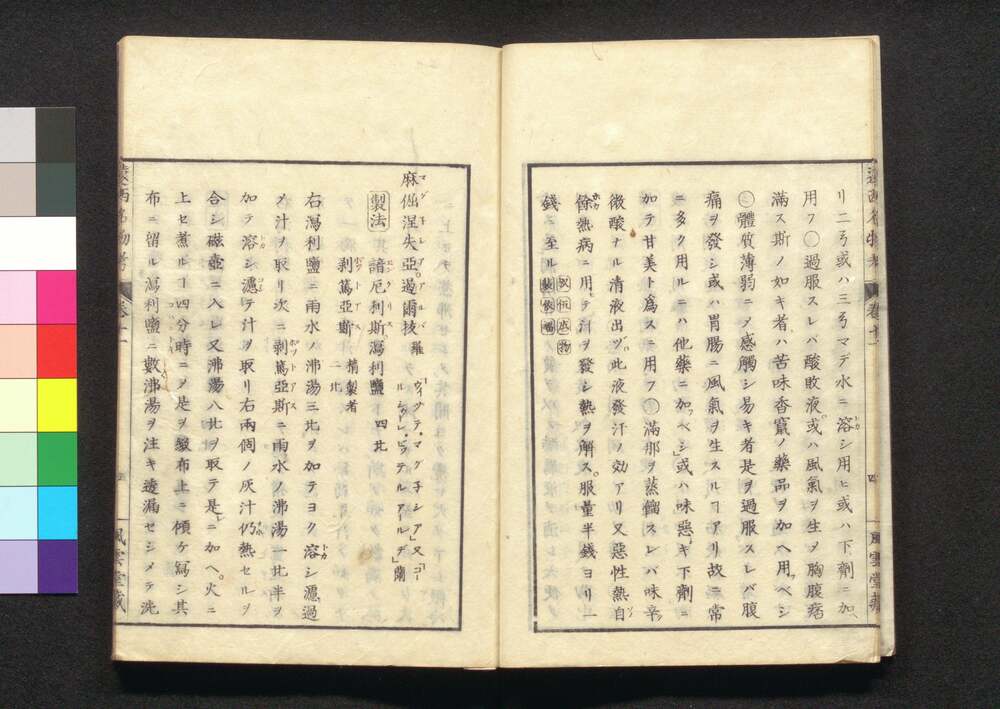 リ二弓或ハ三弓マデ水ニ溶シ用ヒ或ハ下劑ニ加ヘ
用フ○過服スレバ酸敗液或ハ風氣ヲ生ヲ胸腹痞
滿ス斯ノ如キ者ハ苦味香竄ノ藥品ヲ加ヘ用フベシ
○體質薄弱ニメ感觸シ易キ者是ヲ過服スレバ腹
痛ヲ發シ或ハ胃腸ニ風氣ヲ生スルヿアリ故ニ常
ニ多ク用ルニハ他藥ニ加フベシ或ハ味惡キ下劑ニ
加テ甘美ト爲スニ用フ○滿那ヲ蒸餾スレバ味辛ク
微酸ナル清液出ヅ此液發汗ノ効アリ又惡性熱自
餘熱病ニ用テ汗ヲ發シ熱ヲ解ス服量半錢ヨリ一
錢ニ至ル
四
風雲堂藏
麻倨涅失亞過爾抜羅
「ヴィッテ・マグ子シア」又「ゴー
製法
諳厄利斯瀉利鹽 四匕
剥篤亞斯 精製者 二匕
右瀉利鹽ニ雨水ノ沸湯三匕ヲ加テヨク溶シ濾過
メ汁ヲ取リ次ニ剥篤亞斯ニ雨水ノ沸湯一匕半ヲ
加テ溶シ濾テ汁ヲ取リ右兩個ノ灰汁仍熱セルヲ
合シ磁壺ニ入レ又沸湯八匕ヲ取テ是ニ加ヘ火ニ
上セ煮ルヿ四分時ニメ是ヲ嚴布上ニ傾ケ寫シ其
布ニ留ル瀉利鹽ニ數沸湯ヲ注キ透漏セシメテ洗
卷十一
風雲堂藏